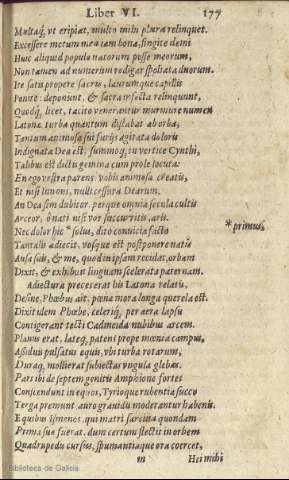 Liber VI. 177
Multaq́, vt eripiat, multo mihi plura relinquet.
Excessere metum mea iam bona, fingite demi
Huic aliquid populo natorum posse meorum,
Non tamen ad numerum redigar spoliata duorum.
Ite satis propere sacris, laurumque capillis
Ponite: deponunt, & sacra infecta relinquunt,
Quodq́, licet, tacito venerantur murmure numen
Latonæ turba quantum distabat ab orba,
Tantum animosa sui suæq́;
Indignata Dea est: summoq́, in vertice Cynthi,
Talibus est dictis gemina cum prole locuta:
En ego vestra parens vobis animosa creatis,
Et nisi Iunoni, nulli cessura Dearum,
An Dea sim dubitor, perque omnia secula cultis
Arceor, ô nati nisi vos succurritis, aris.
Nec dolor hic * solus, diro conuicia facto * primus,
Tantalis adiecit, vosque est postponere natis
Ausa suis, & me, quod in ipsam recidat, orbam
Dixit, & exhibuit linguam scelerata paternam.
Adiectura preces erat his Latona relatis,
Desine, Phœbus ait, pœnæ mora longa querela est.
Dixit idem Phœbe, celeriq́, per aera lapsu
Contigerant tecti Cadmeida nubibus arcem.
Planus erat, lateq́, patens prope mœnia campus,
Assiduis pulsatus equis, vbi turba rotarum,
Duraq́, mollierat subiectas vngula glebas.
Pars ibi de septem genitis Amphione fortes
Conscendunt in equos, Tyrioque rubentia succo
Terga premunt, auro grauidis moderantur habenis.
Equibus Ismenos, qui matri sarcina quondam
Prima suæ fuerat, dum certum flectit in orbem
Quadrupedis cursus, spumantiaque ora coercet,
m Hei mihi
Biblioteca de Galicia